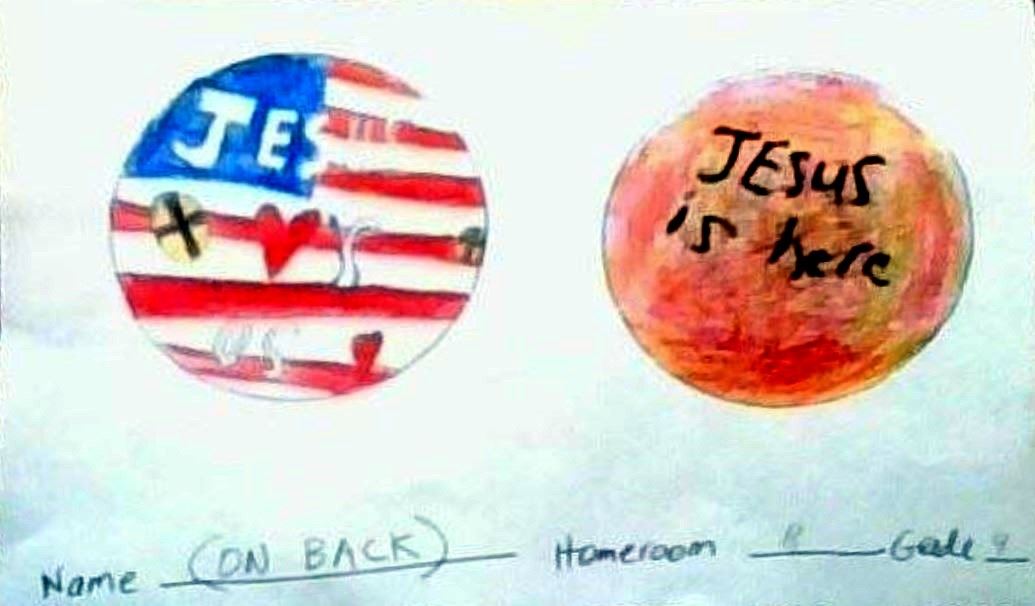 JESUS
US
JESUS
is here
Name (ON BACK) Homeroom R Grade 9